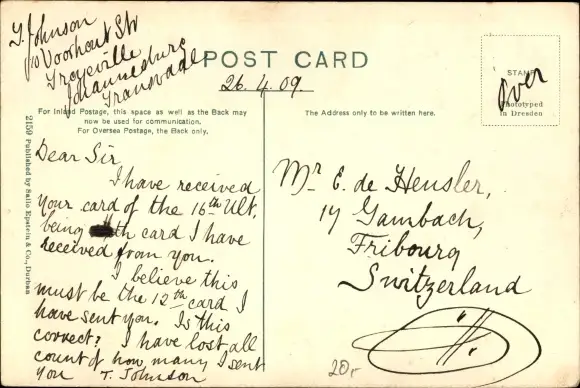 T. Johnson
70 Voorhout Str
Troyeville
Johannesburg
Transvaal
POST CARD
26.4.09.
STAMP
over
Phototyped
in Dresden
For Inland Postage, this space as well as the Back may
now be used for communication.
For Oversea Postage, the Back only.
The Address only to be written here.
2159 Published by Sallo Epstein & Co., Durban
Dear Sir
I have received
your card of the 16th Ult.
being th card I have
received from you.
I believe this
must be the 12th card I
have sent you. Is this
correct? I have lost all
count of how many I sent
you T. Johnson
Mr E. de Hensler,
14 Gambach,
Fribourg
Switzerland
20,-